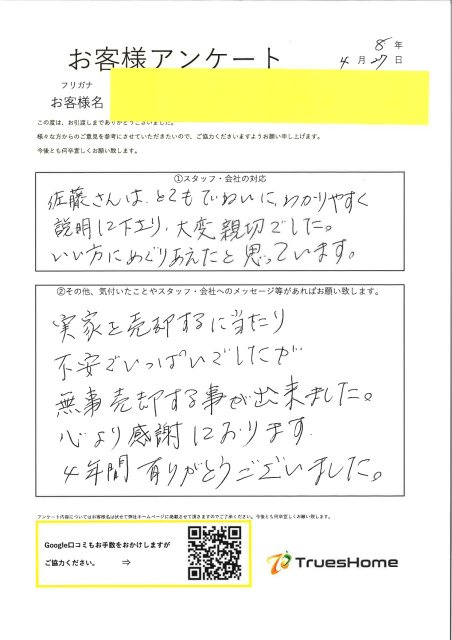 8年
お客様アンケート
4月27日
フリガナ
お客様名
この度は、お引渡しまでありがとうございました。
様々な方からのご意見を参考にさせていただきたいので、ご協力くださいますようお願い申し上げます。
今後とも何卒宜しくお願い致します。
①スタッフ・会社の対応
佐藤さんは、とてもていねいに、わかりやすく
説明して下さり、大変親切でした。
いい方にめぐりあえたと思っています。
②その他、気付いたことやスタッフ・会社へのメッセージ等があればお願い致します。
実家を売却するに当たり
不安でいっぱいでしたが
無事売却する事が出来ました。
心より感謝しております。
4年間有りがとうございました。
アンケート内容についてはお客様名は伏せて弊社ホームページに掲載させて頂きますのでご了承ください。今後とも何卒宜しくお願い致します。
Google口コミもお手数をおかけしますが
ご協力ください。 ⇒
TruesHome